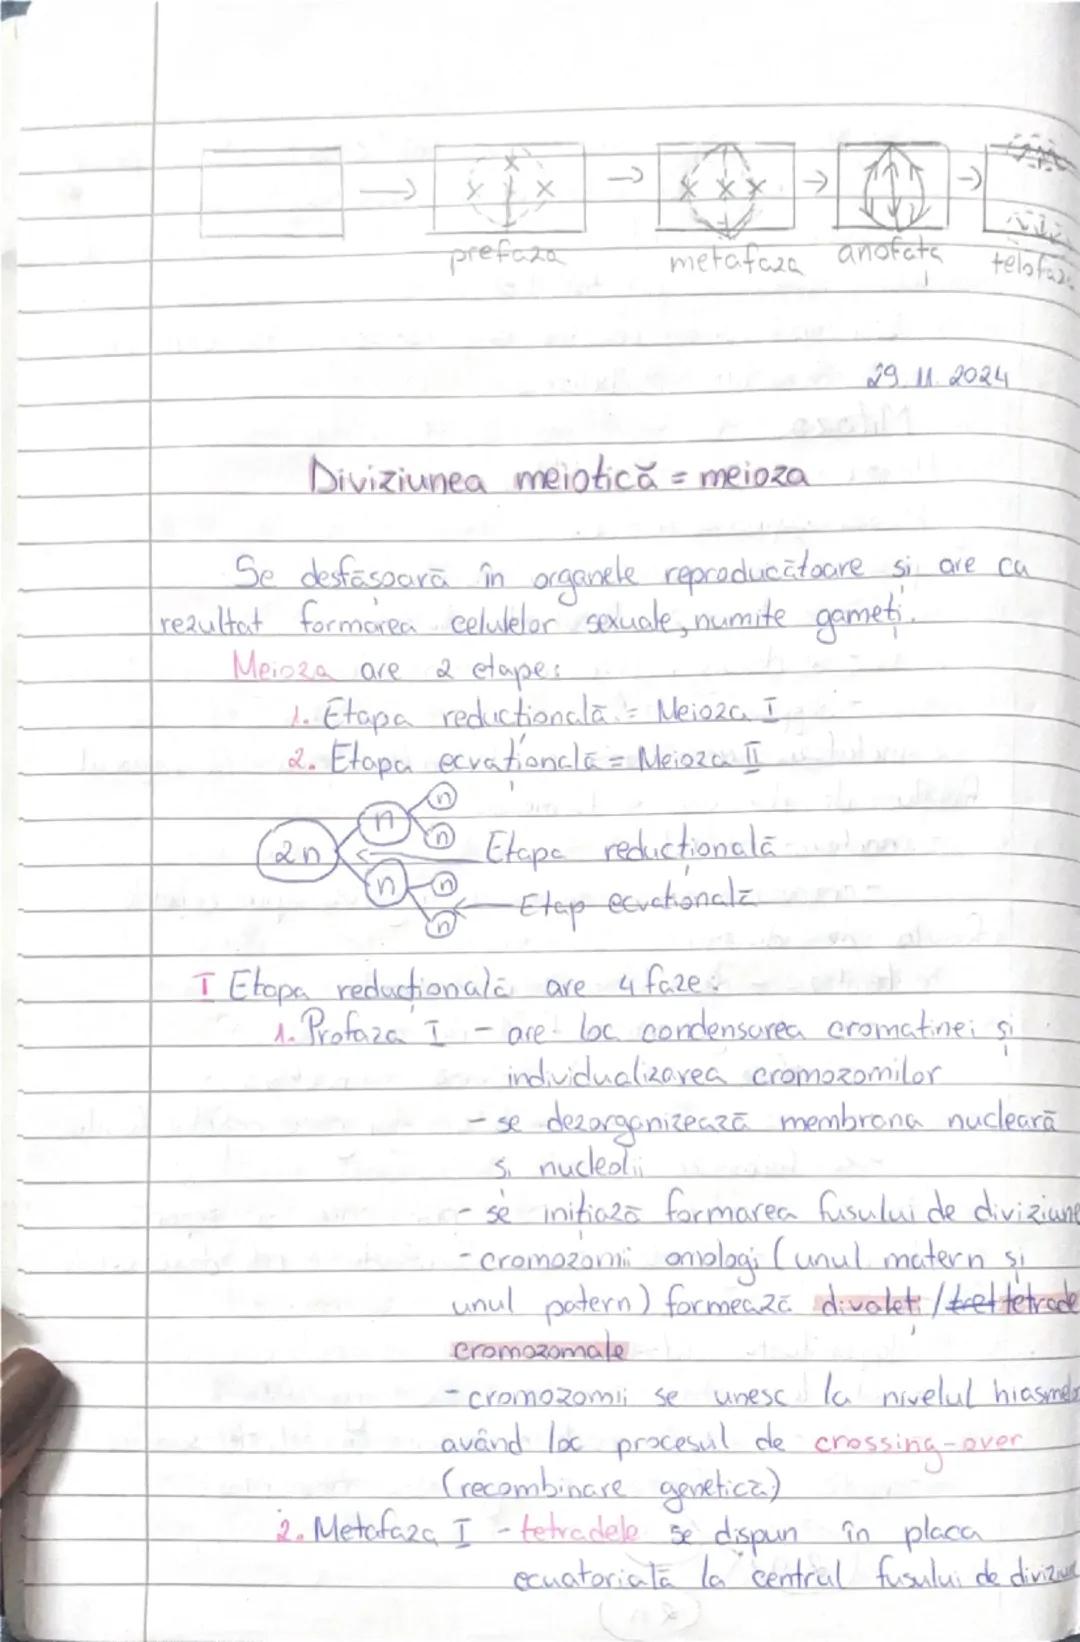 prefaza
metafaza
anofata
telofaza
29. 11. 2024
Diviziunea meiotică = meioza
Se desfăsoară în organele reproducătoare si are ca
rezultat formarea celulelor sexuale, numite gameți.
Meioza are 2 etape:
1. Etapa reducțională = Meioza I
2. Etapa ecvațională = Meioza II
2n n n n n n n
Etapa reducțională
Etap ecvațională
I Etapa reducțională are 4 faze:
1. Profaza I - are loc condensarea cromatinei și
individualizarea cromozomilor
- se dezorganizează membrana nucleară
și nucleolii
- se inițiază formarea fusului de diviziune
- cromozomii omologi (unul matern și
unul patern) formează divaleți / tet tetrade
cromozomale
- cromozomii se unesc la nivelul hiasmelor
având loc procesul de crossing-over
(recombinare genetică)
2. Metafaza I - tetradele se dispun în placa
ecuatorială la centrul fusului de diviziune